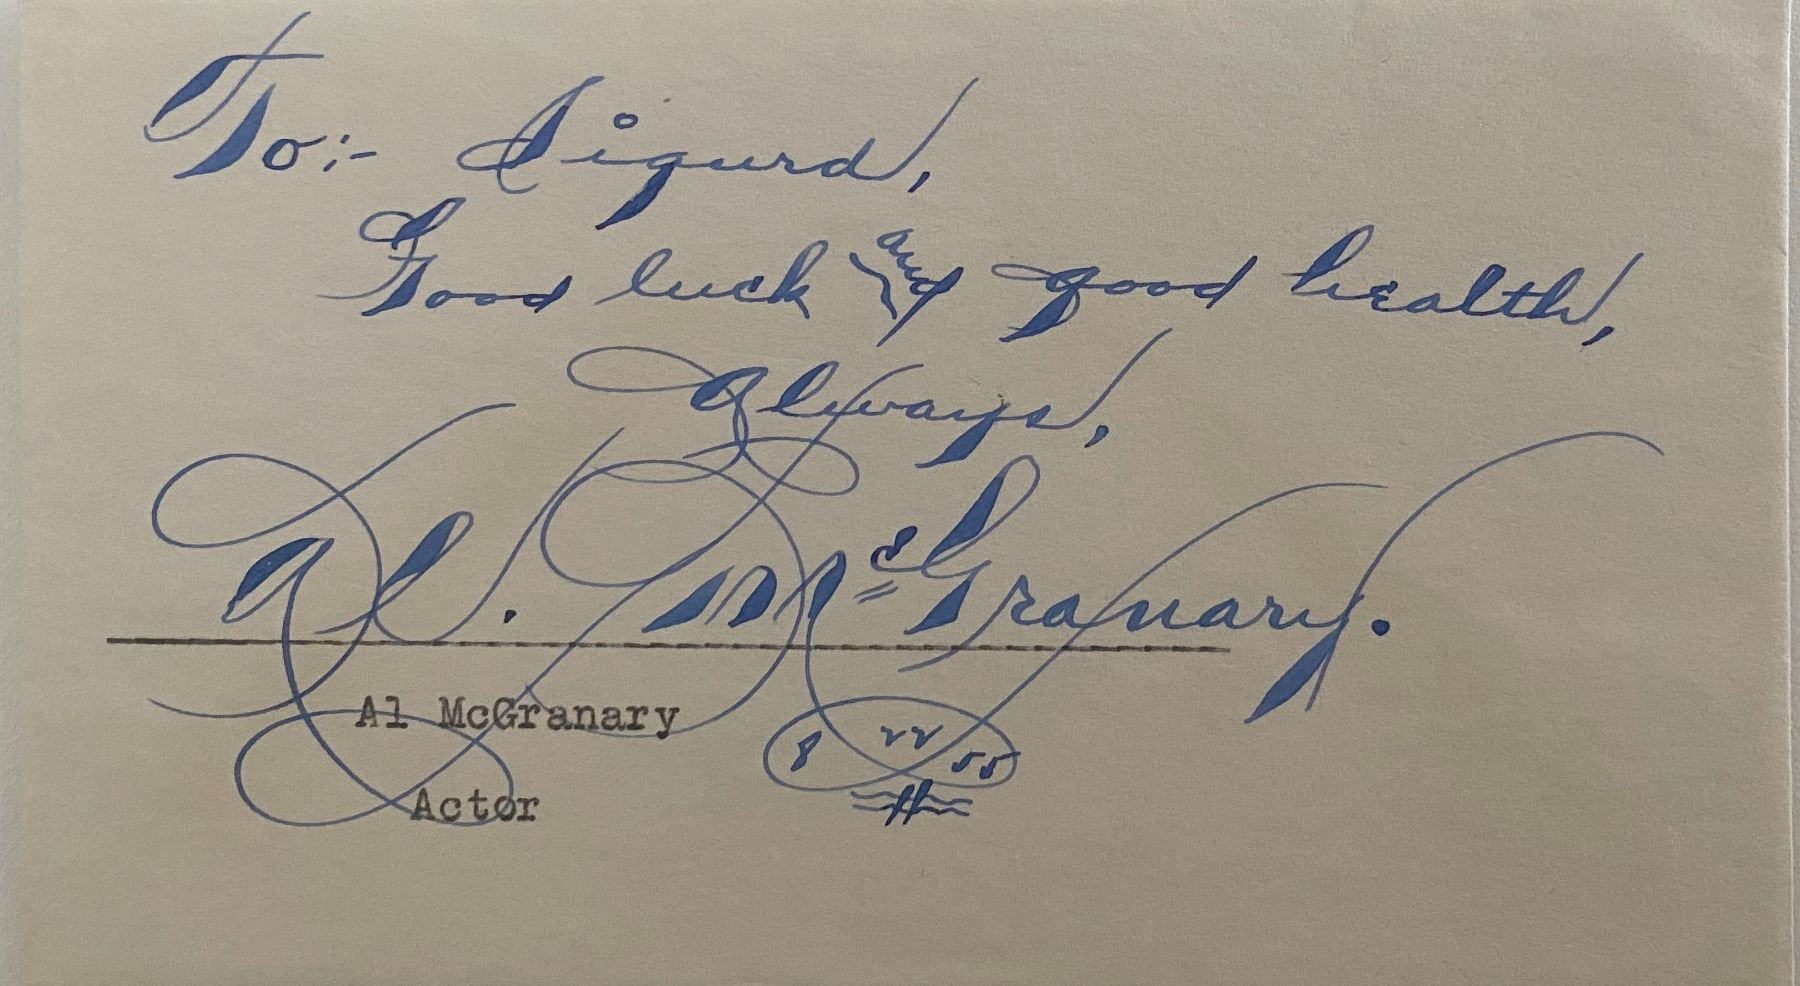 To:- Sigurd,
Good luck and good health,
Always,
Al. McGranary.
Al McGranary
8 22 55
Actor